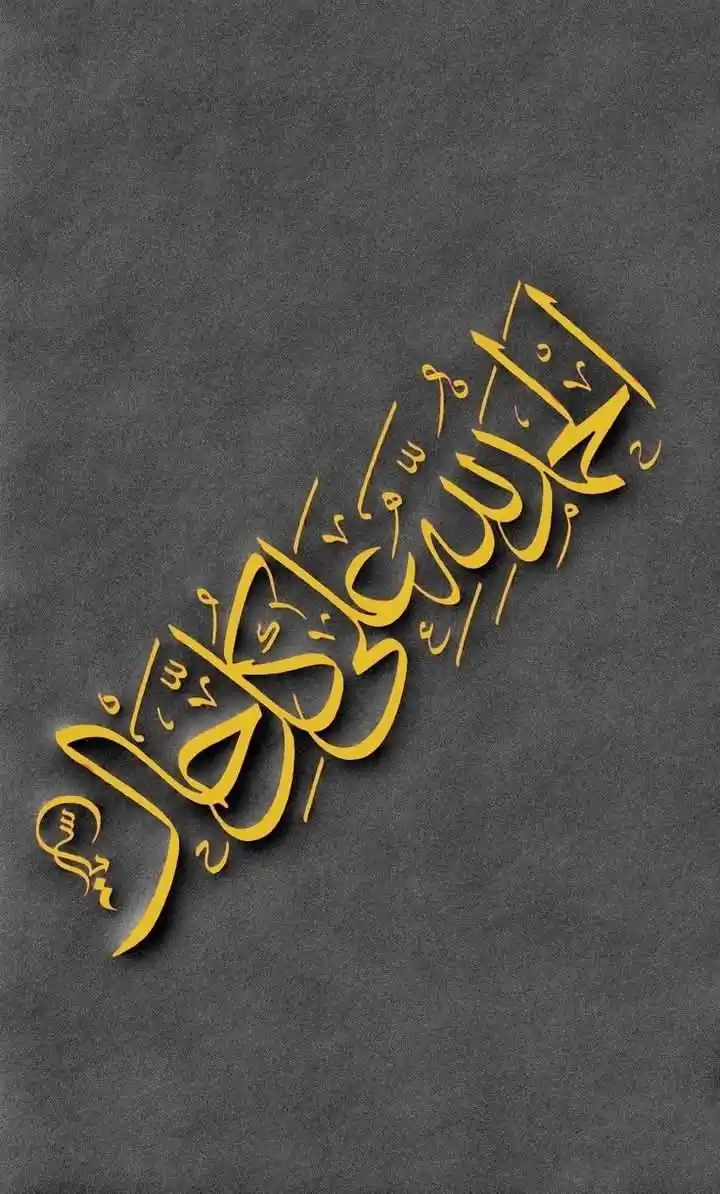 الحَمْدُ لِلّٰهِ عَلَى كُلِّ حَالٍ